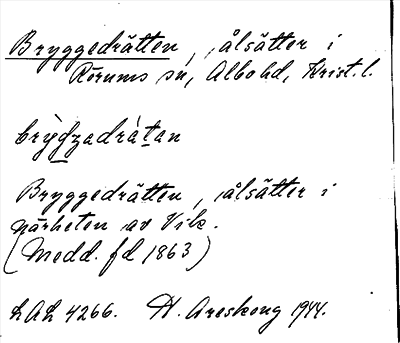 Bryggedrätten, ålsätter i
Rörums sn, Albo hd, Krist. l.
brỳdʒadràtan
Bryggedrätten, ålsätter i
närheten av Vik.
(Medd. fd 1863)
LAL 4266. H. Areskoug 1944.